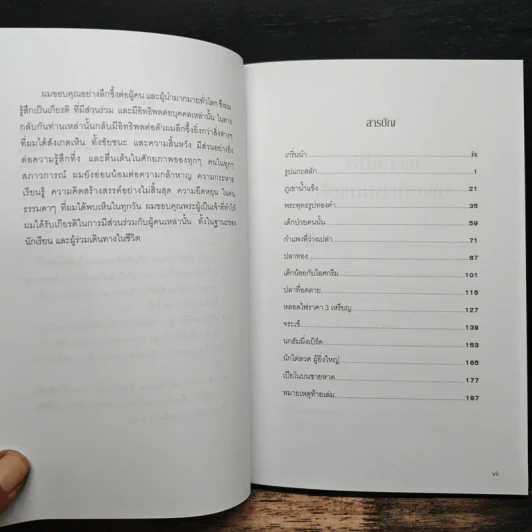 ผมขอบคุณอย่างลึกซึ้งต่อผู้คน และผู้นำมากมายทั่วโลก ซึ่งผม
รู้สึกเป็นเกียรติ ที่มีส่วนร่วม และมีอิทธิพลต่อบุคคลเหล่านั้น ในทาง
กลับกันท่านเหล่านั้นกลับมีอิทธิพลต่อตัวผมลึกซึ้งยิ่งกว่าสิ่งต่างๆ
ที่ผมได้สังเกตเห็น ทั้งชัยชนะ และความสิ้นหวัง มีส่วนช่วยอย่างยิ่ง
ต่อความรู้สึกทึ่ง และตื่นเต้นในศักยภาพของทุกๆ คนในทุกๆ
สภาวการณ์ ผมยังอ่อนน้อมต่อความกล้าหาญ ความกระหาย
เรียนรู้ ความคิดสร้างสรรค์อย่างไม่สิ้นสุด ความยืดหยุ่น ในคน
ธรรมดาๆ ที่ผมได้พบเห็นในทุกวัน ผมขอบคุณพระผู้เป็นเจ้าที่ทำให้
ผมได้รับเกียรติในการมีส่วนร่วมกับผู้คนเหล่านั้น ทั้งในฐานะของ
นักเรียน และผู้ร่วมเดินทางในชีวิต
สารบัญ
เกริ่นนำ ix
รูปแกะสลัก 1
ภูเขาน้ำแข็ง 21
พระพุทธรูปทองคำ 35
เด็กป่วยคนนั้น 59
กำแพงที่ว่างเปล่า 71
ปลาทอง 87
เด็กน้อยกับไอศกรีม 101
ปลาที่อดตาย 115
หลอดไฟราคา 3 เหรียญ 127
จระเข้ 139
นกฮัมมิ่งเบิร์ด 153
นักไต่ลวด ผู้ยิ่งใหญ่ 165
เปียโนบนชายหาด 177
หมายเหตุท้ายเล่ม 197
vii